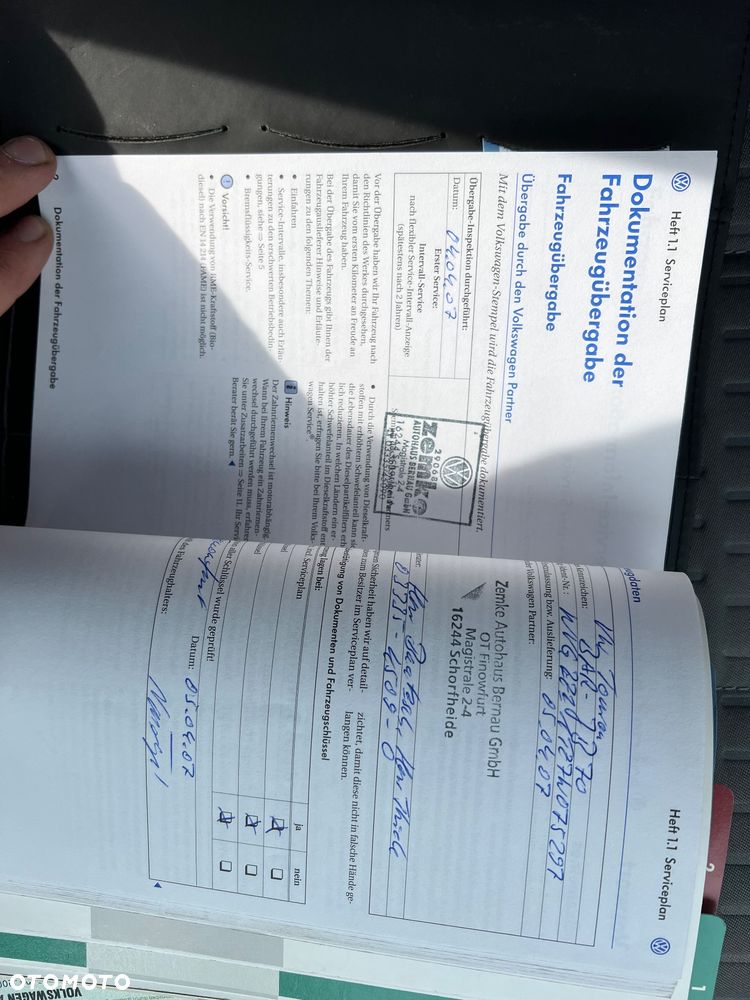 Heft 1.1 Serviceplan
Dokumentation der
Fahrzeugübergabe
Fahrzeugübergabe
Übergabe durch den Volkswagen Partner
Mit dem Volkswagen-Stempel wird die Fahrzeugübergabe dokumentiert.
Übergabe-Inspektion durchgeführt:
Datum: 04.04.07
Erster Service:
Intervall-Service
nach flexibler Service-Intervall-Anzeige
(spätestens nach 2 Jahren)
29068
zemke
AUTOHAUS BERNAU GmbH
Magistrale 2-4
Vor der Übergabe haben wir Ihr Fahrzeug nach
den Richtlinien des Werkes durchgesehen,
damit Sie vom ersten Kilometer an Freude an
Ihrem Fahrzeug haben.
Bei der Übergabe des Fahrzeugs gibt Ihnen der
Fahrzeugauslieferer Hinweise und Erläute-
rungen zu den folgenden Themen:
• Einfahren
• Service-Intervalle, insbesondere auch Erläu-
terungen zu den erschwerten Betriebsbedin-
gungen, siehe ⇒ Seite 5
• Bremsflüssigkeits-Service.
Vorsicht!
• Die Verwendung von RME-Kraftstoff (Bio-
diesel) nach EN 14 214 (FAME) ist nicht möglich.
• Durch die Verwendung von Dieselkraft-
stoffen mit erhöhtem Schwefelanteil kann sich
die Lebensdauer des Dieselpartikelfilters erheb-
lich reduzieren. In welchen Ländern ein er-
höhter Schwefelanteil im Dieselkraftstoff ent-
halten ist, erfragen Sie bitte bei Ihrem Volks-
wagen Service
Hinweis
Der Zahnriemenwechsel ist motorabhängig.
Wann bei Ihrem Fahrzeug ein Zahnriemen-
wechsel durchgeführt werden muss, erfahren
Sie unter Zusatzarbeiten ⇒ Seite 11. Ihr Service
Berater berät Sie gern.
2 Dokumentation der Fahrzeugübergabe
Heft 1.1 Serviceplan
gdaten
Kennzeichen: BAR-
ident-Nr.:
ulassung bzw. Auslieferung: 05.04.07
er Volkswagen Partner:
Zemke Autohaus Bernau GmbH
OT Finowfurt
Magistrale 2-4
16244 Schorfheide
03335-4509-0
Sicherheit haben wir auf detail-
zum Besitzer im Serviceplan ver-
zichtet, damit diese nicht in falsche Hände ge-
langen können.
digung von Dokumenten und Fahrzeugschlüssel
lagen bei:
ja nein
Serviceplan
aller Schlüssel wurde geprüft!
Datum: 05.04.07
des Fahrzeughalters:
2
1
VOLKSWAGEN
OTOMOTO